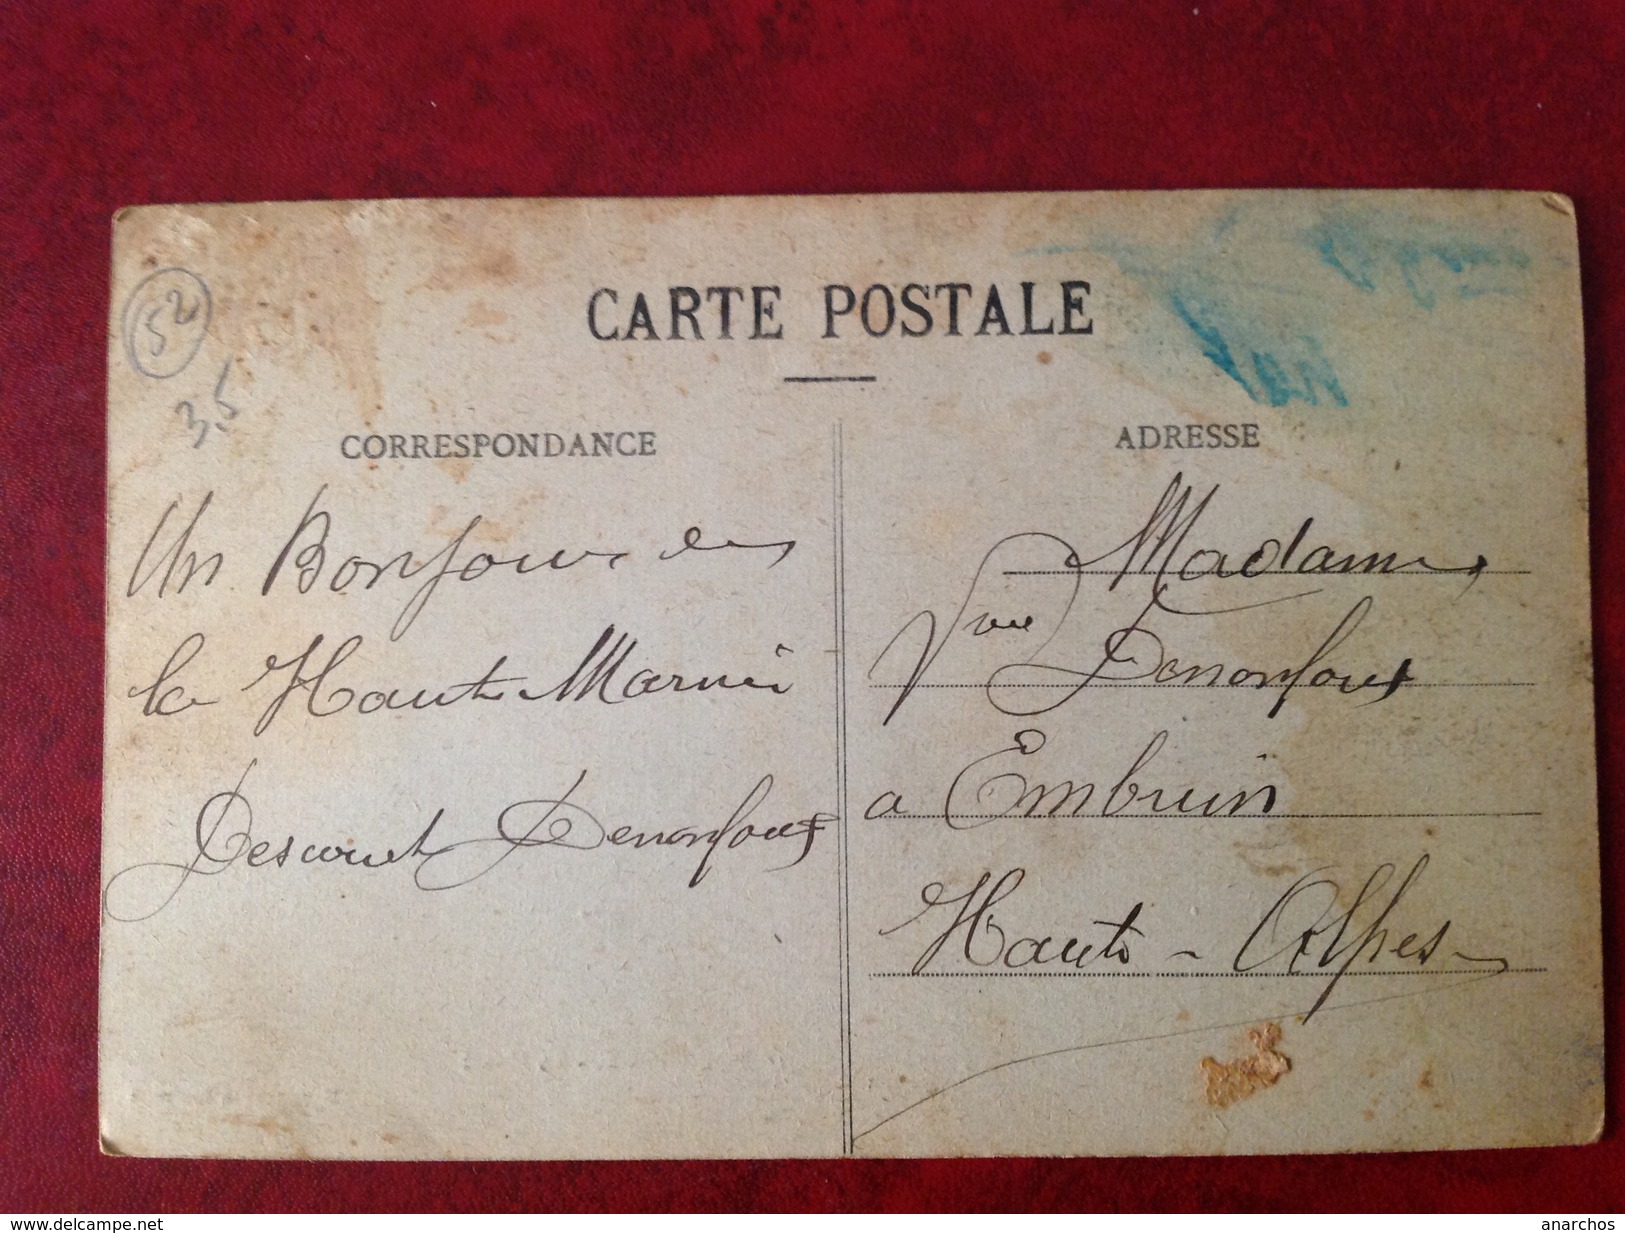 CARTE POSTALE
52
3.5
CORRESPONDANCE
Un Bonjour de
la Haute Marne
Denonfoux
ADRESSE
Madame
Vve Denonfoux
a Embrun
Haute - Alpes
www.delcampe.net
anarchos